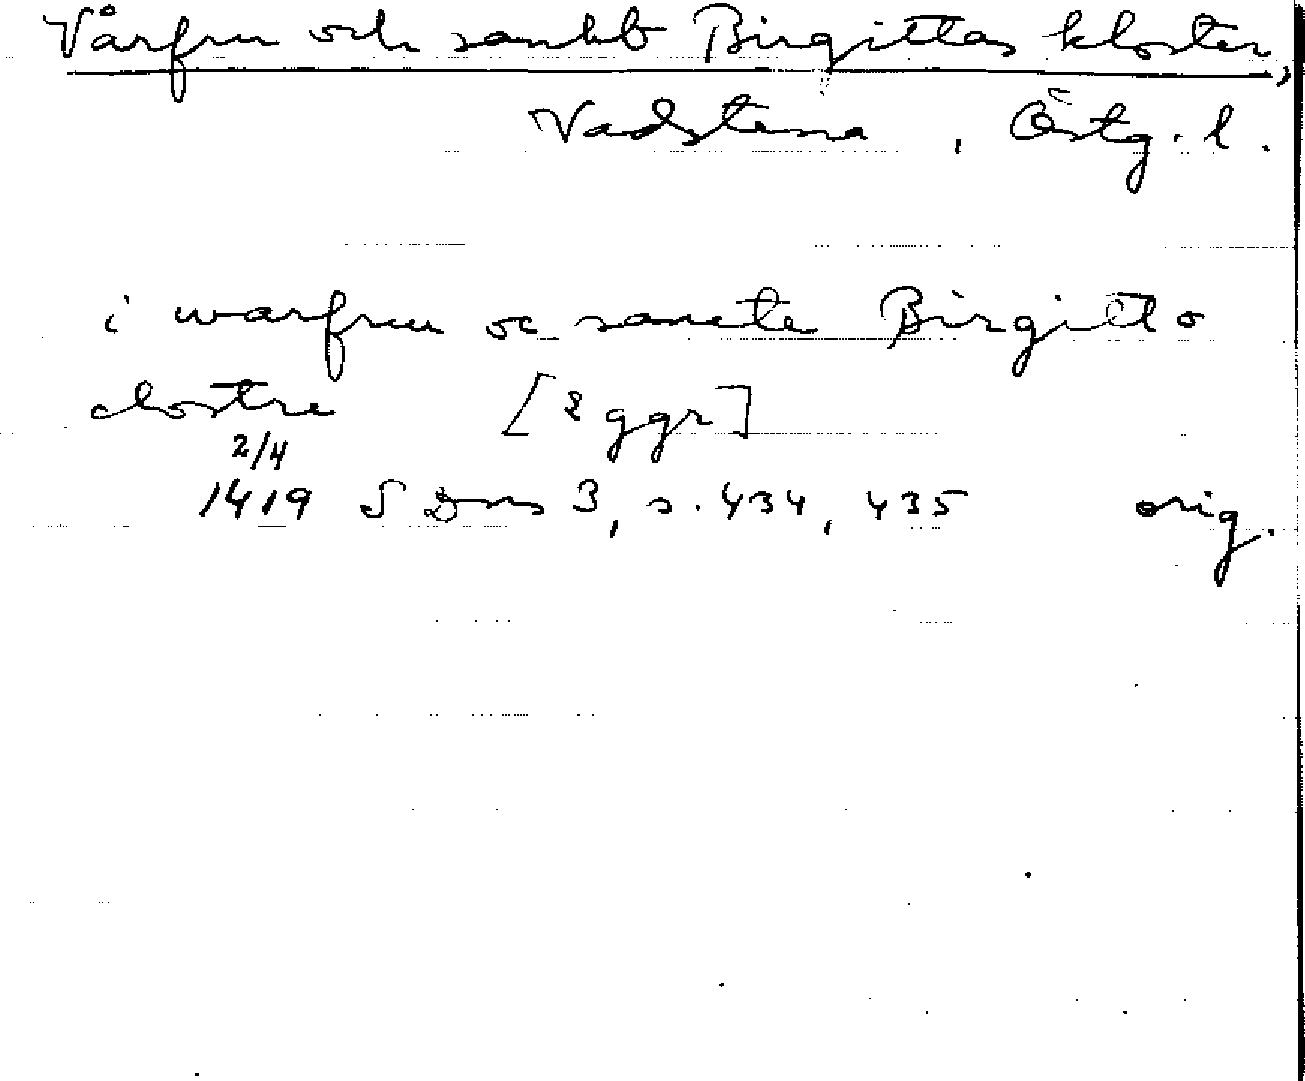 Vårfru och sankt Birgittas kloster,
Vadstena, Östg. l.
i warfrun oc sancte Birgitto
clostre [2 ggr]
2/4
1419 SDns 3, s. 434, 435 orig.